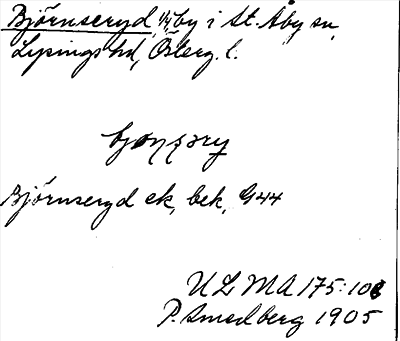 Björnseryd, 1/4 by i St. Åby sn,
Lysings hd, Österg. l.
Björnseryd ek, bek, G44
ULMA 175:10
P. Smedberg 1905